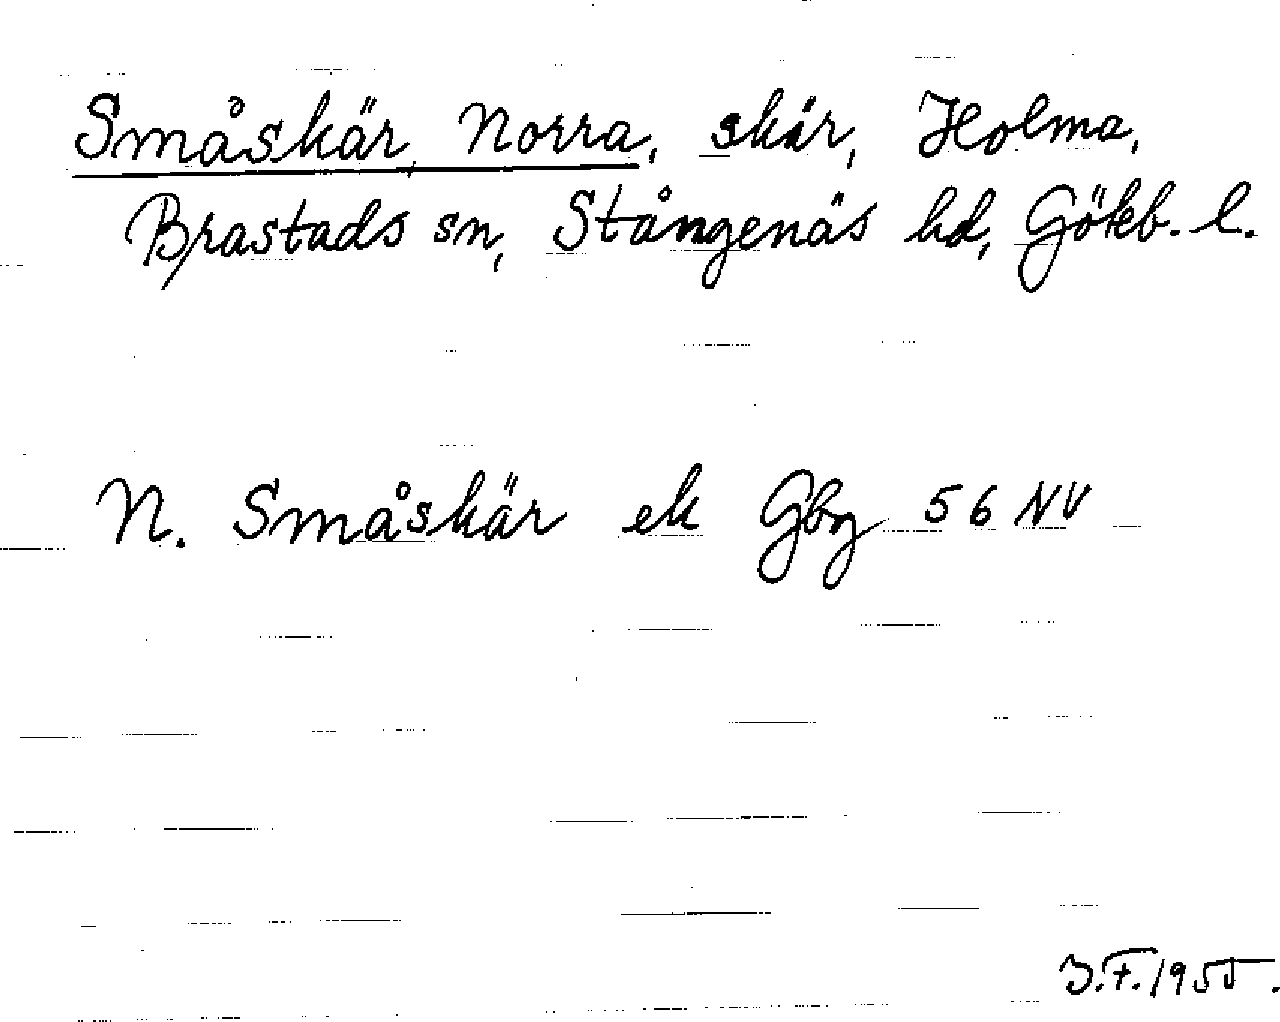 Småskär, Norra, skär, Holma,
Brastads sn, Stångenäs hd, Göteb. l.
N. Småskär ek Gbg 56 NV
J.F. 1955.